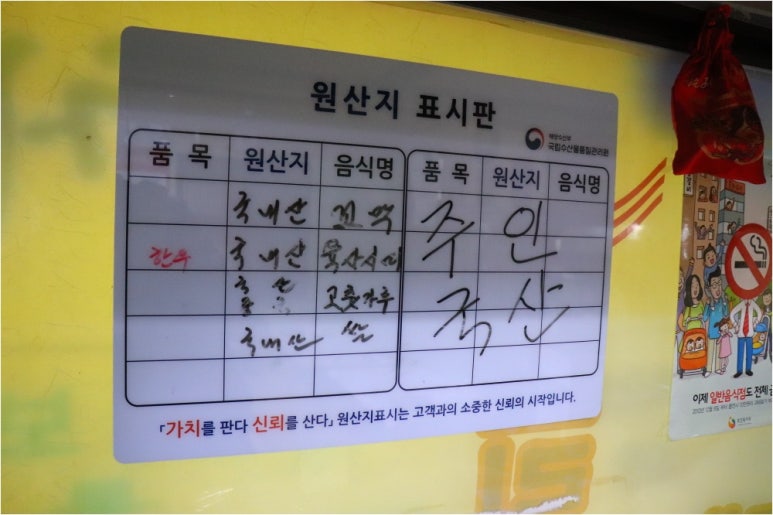 원산지 표시판
해양수산부
국립수산물품질관리원
품 목 원산지 음식명 품 목 원산지 음식명
국내산 꼬막
한우 국내산 육사시미
고춧가루
국내산 쌀
주인
국산
「가치를 판다 신뢰를 산다」 원산지표시는 고객과의 소중한 신뢰의 시작입니다.
이제 일반음식점도 전체